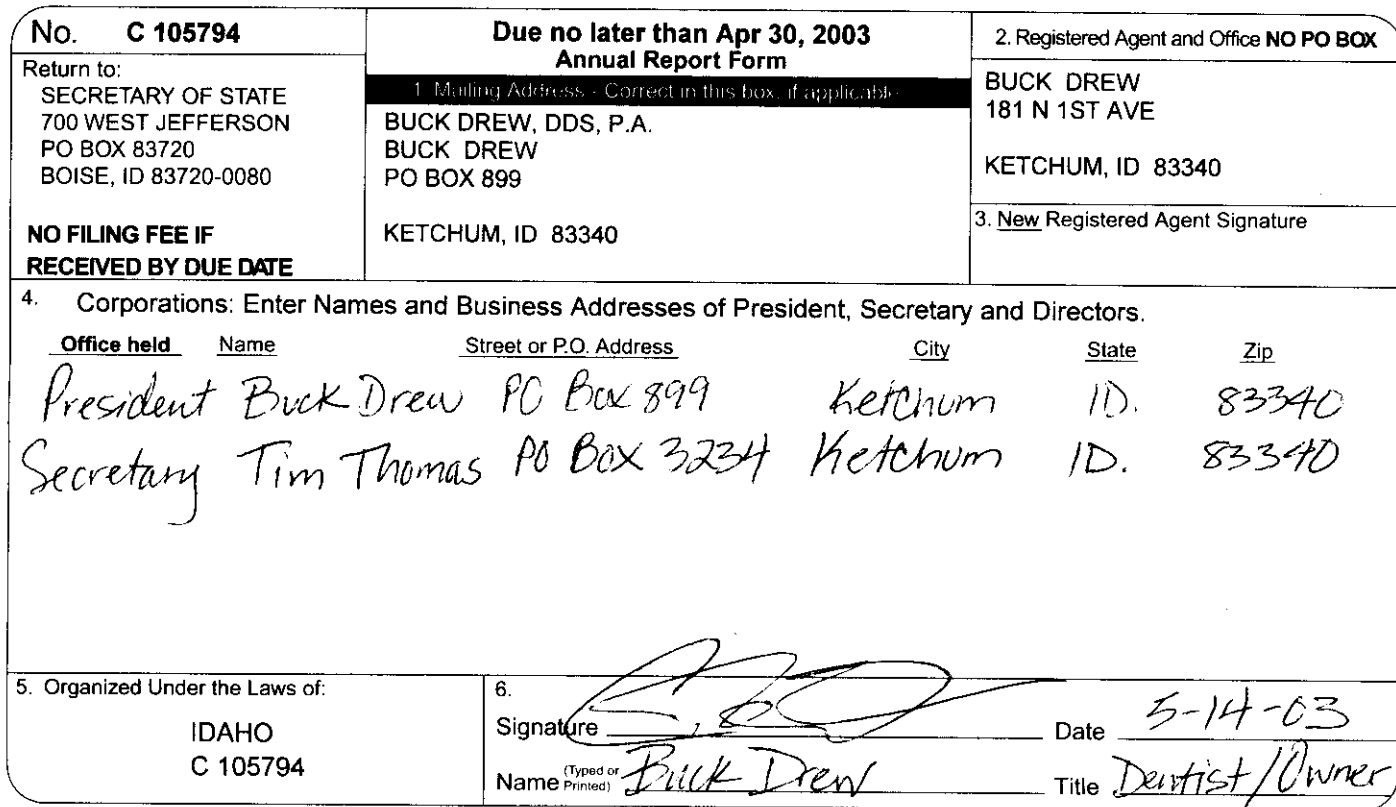 No. C 105794
Return to:
SECRETARY OF STATE
700 WEST JEFFERSON
PO BOX 83720
BOISE, ID 83720-0080
NO FILING FEE IF
RECEIVED BY DUE DATE
Due no later than Apr 30, 2003
Annual Report Form
1. Mailing Address - Correct in this box, if applicable
BUCK DREW, DDS, P.A.
BUCK DREW
PO BOX 899
KETCHUM, ID 83340
2. Registered Agent and Office NO PO BOX
BUCK DREW
181 N 1ST AVE
KETCHUM, ID 83340
3. New Registered Agent Signature
4. Corporations: Enter Names and Business Addresses of President, Secretary and Directors.
Office held Name Street or P.O. Address City State Zip
President Buck Drew PO Box 899 Ketchum ID. 83340
Secretary Tim Thomas PO Box 3234 Ketchum ID. 83340
5. Organized Under the Laws of:
IDAHO
C 105794
6.
Signature Date 5-14-03
Name (Typed or Printed) Buck Drew Title Dentist/Owner